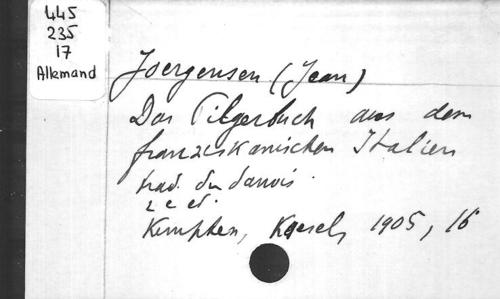 445
235
17
Allemand
Joergensen (Jean)
Das Pilgerbuch aus dem
franziskanischen Italien
trad. du danois.
2e ed.
Kempten, Koesel, 1905, 16